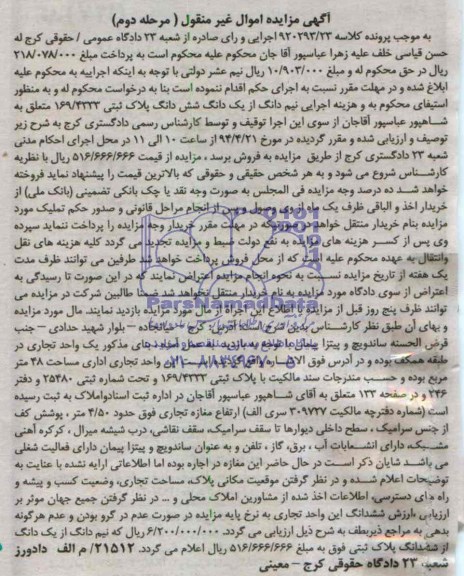 آگهی مزایده اموال غیر منقول ( مرحله دوم)
به موجب پرونده کلاسه ۹۲۰۲۹۳/۲۳ اجرایی و رای صادره از شعبه ۲۳ دادگاه عمومی / حقوقی کرج له
حسن قیاسی خلف علیه زهرا عباسپور آقا جان محکوم علیه محکوم است به پرداخت مبلغ ۲۱۸/۰۷۸/۰۰۰
ریال در حق محکوم له و مبلغ ۱۰/۹۰۳/۰۰۰ ریال نیم عشر دولتی با توجه به اینکه اجراییه به محکوم علیه
ابلاغ شده و در مهلت مقرر نسبت به اجرای حکم اقدام ننموده است بنا به درخواست محکوم له و به منظور
استیفای محکوم به و هزینه اجرایی نیم دانگ از یک دانگ شش دانگ پلاک ثبتی ۱۶۹/۴۳۳۳ متعلق به
شاهپور عباسپور آقاجان از سوی این اجرا توقیف و توسط کارشناس رسمی دادگستری کرج به شرح زیر
توصیف و ارزیابی شده و مقرر گردیده در مورخ ۹۴/۴/۲۱ از ساعت ۱۰ الی ۱۱ در محل اجرای احکام مدنی
شعبه ۲۳ دادگستری کرج از طریق مزایده به فروش برسد ، مزایده از قیمت ۵۱۶/۶۶۶/۶۶۶ ریال با نظریه
کارشناس شروع می شود و به هر شخص حقیقی و حقوقی که بالاترین قیمت را پیشنهاد نماید فروخته
خواهد شد ده درصد وجه مزایده فی المجلس به صورت وجه نقد یا چک بانکی تضمینی (بانک ملی) از
خریدار اخذ و الباقی ظرف یک ماه از وی وصول و پس از انجام مراحل قانونی و صدور حکم تملیک مورد
مزایده بنام خریدار منتقل خواهد در صورتیکه در مهلت مقرر خریدار وجه مزایده را پرداخت ننماید سپرده
وی پس از کسر هزینه های مزایده به نفع دولت ضبط و مزایده تجدید می گردد کلیه هزینه های نقل
وانتقال به عهده محکوم علیه است که از محل فروش پرداخت خواهد شد طرفین می توانند ظرف مدت
یک هفته از تاریخ مزایده نسبت به نحوه انجام مزایده اعتراض نمایند که در این صورت تا رسیدگی به
اعتراض از سوی دادگاه مورد مزایده به نام خریدار منتقل نخواهد شد ضمنا طالبین شرکت در مزایده می
توانند ظرف پنج روز قبل از مزایده با اطلاع این اجراء از مال مورد مزایده بازدید نمایند. مال مورد مزایده
و بهای آن طبق نظر کارشناس بدین شرح است آدرس: کرج – – بلوار شهید حدادی – جنب
قرض الحسنه ساندویچ و پیتزا پیمان با توجه به بازدید به عمل آمده از محل مذکور یک واحد تجاری در
طبقه همکف بوده و در آدرس فوق واحد تجاری اداری مساحت ۴۸ متر
مربع بوده و حسب مندرجات سند مالکیت با پلاک ثبتی ۱۶۹/۴۳۳۳ و تحت شماره ثبتی ۲۵۴۸۰ و دفتر
۲۴۶ و در صفحه ۱۳۳ متعلق به آقای شاهپور عباسپور آقاجان در اداره ثبت اسنادواملاک به ثبت رسیده
است (شماره دفترچه مالکیت ۳۰۹۷۲۷ سری الف) ارتفاع مغازه تجاری فوق حدود ۴/۵۰ متر ، پوشش کف
از جنس سرامیک ، سطح داخلی دیوارها تا سقف سرامیک، سقف نقاشی، درب شیشه میرال ، کرکره آهنی
مشبک، دارای انشعابات آب ، برق، گاز ، تلفن و به عنوان ساندویچ و پیتزا پیمان دارای فعالیت شغلی
می باشد شایان ذکر است در حال حاضر این مغازه در اجاره بوده اما اطلاعاتی ارایه نشده با عنایت به
توضیحات اعلام شده و در نظر گرفتن موقعیت مکانی پلاک، مساحت تجاری، وضعیت کسب و پیشه و
راه های دسترسی، اطلاعات اخذ شده از مشاورین املاک محلی و ... در نظر گرفتن جمیع جهان موثر بر
ارزیابی ،ارزش ششدانگ این واحد تجاری به نرخ پایه مزایده در صورت عدم در گرو بودن و عدم هرگونه
بدهی به مراجع ذیربطف به شرح ذیل ارزیابی می گردد. ۶/۲۰۰/۰۰۰/۰۰۰ ریال که نیم دانگ از یک دانگ
از ششدانگ پلاک ثبتی فوق به مبلغ ۵۱۶/۶۶۶/۶۶۶ ریال اعلام می گردد. ۲۱۵۱۲/ م الف دادورز
شعبه ۲۳ دادگاه حقوقی کرج – معینی
ParsNamadData
۰۲۱-۸۸۳۴۹۶۷۰-۵